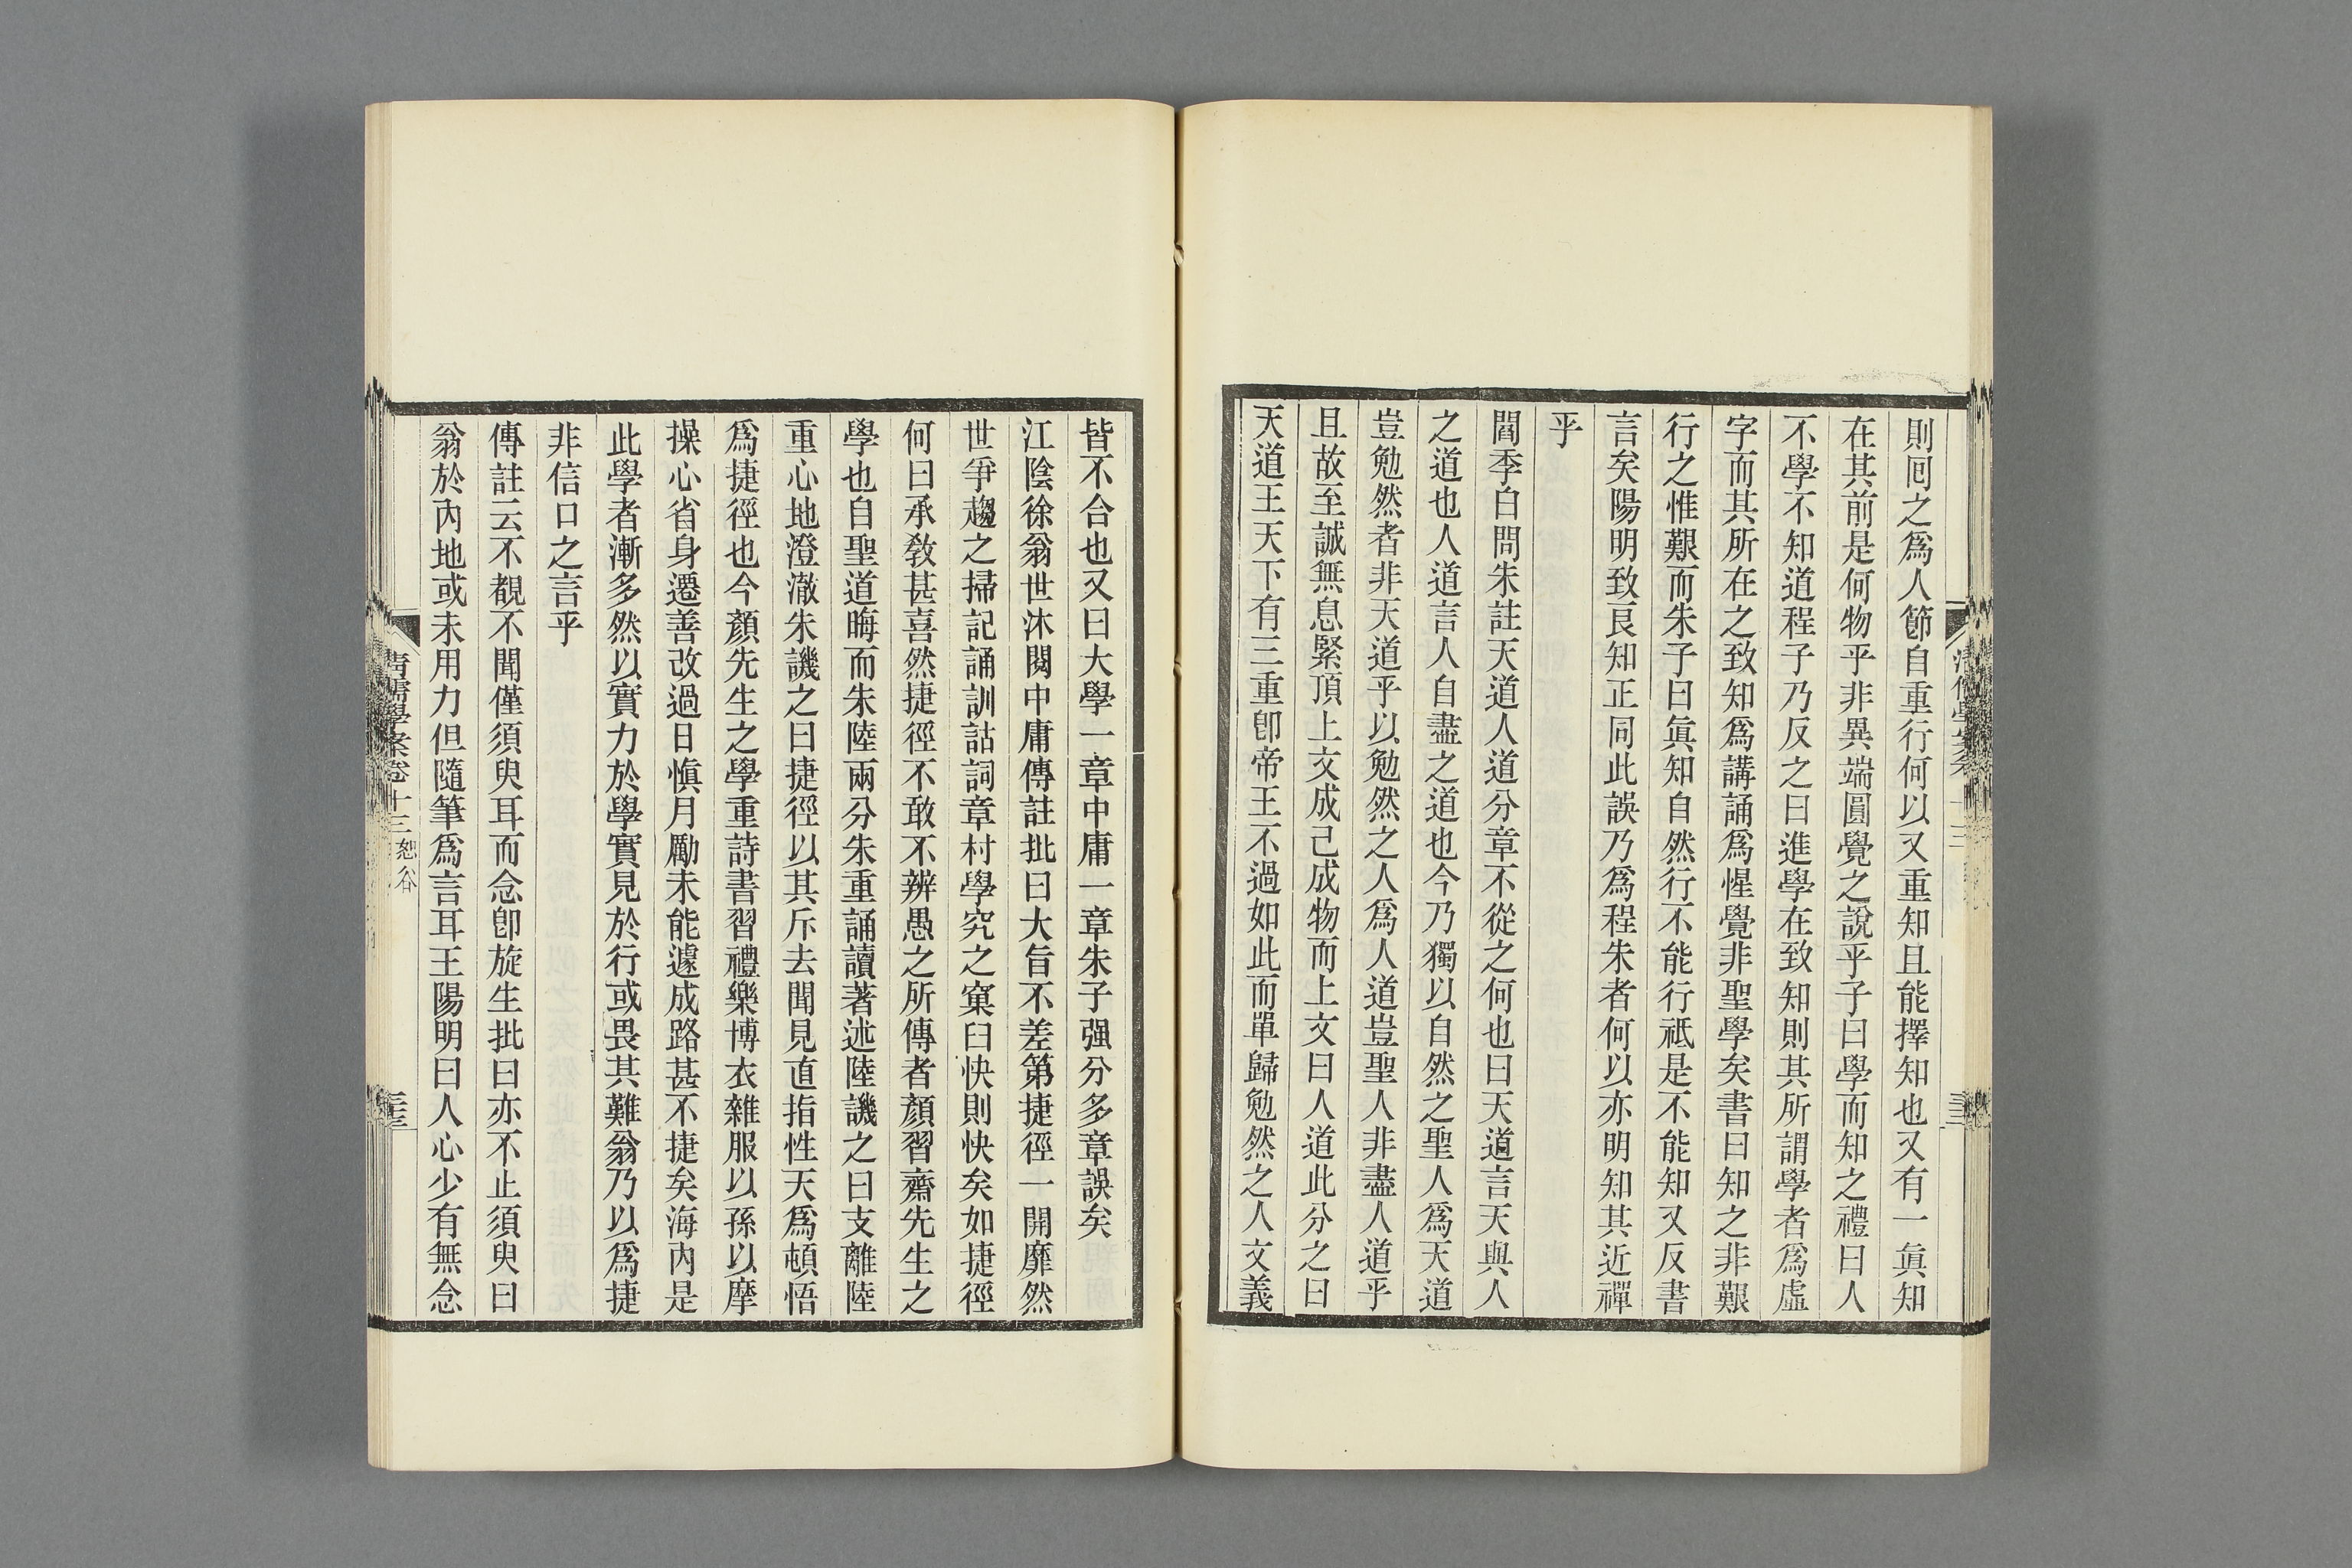 則囘之爲人節自重行何以又重知且能擇知也又有一眞知
在其前是何物乎非異端圓覺之說乎子曰學而知之禮曰人
不學不知道程子乃反之曰進學在致知則其所謂學者爲虛
字而其所在之致知爲講誦爲惺覺非聖學矣書曰知之非艱
行之惟艱而朱子曰眞知自然行不能行祗是不能知又反書
言矣陽明致良知正同此誤乃爲程朱者何以亦明知其近禪
乎
閻季白問朱註天道人道分章不從之何也曰天道言天與人
之道也人道言人自盡之道也今乃獨以自然之聖人爲天道
豈勉然者非天道乎以勉然之人爲人道豈聖人非盡人道乎
且故至誠無息緊頂上文成己成物而上文曰人道此分之曰
天道王天下有三重卽帝王不過如此而單歸勉然之人文義
皆不合也又曰大學一章中庸一章朱子强分多章誤矣
江陰徐翁世沐閱中庸傳註批曰大旨不差第捷徑一開靡然
世爭趨之掃記誦訓詁詞章村學究之窠臼快則快矣如捷徑
何曰承敎甚喜然捷徑不敢不辨愚之所傳者顏習齋先生之
學也自聖道晦而朱陸兩分朱重誦讀著述陸譏之曰支離陸
重心地澄澈朱譏之曰捷徑以其斥去聞見直指性天爲頓悟
爲捷徑也今顏先生之學重詩書習禮樂博衣雜服以孫以摩
操心省身遷善改過日愼月勵未能遽成路甚不捷矣海內是
此學者漸多然以實力於學實見於行或畏其難翁乃以爲捷
非信口之言乎
傳註云不覩不聞僅須臾耳而念卽旋生批曰亦不止須臾曰
翁於內地或未用力但隨筆爲言耳王陽明曰人心少有無念
清儒學案卷十三 恕谷